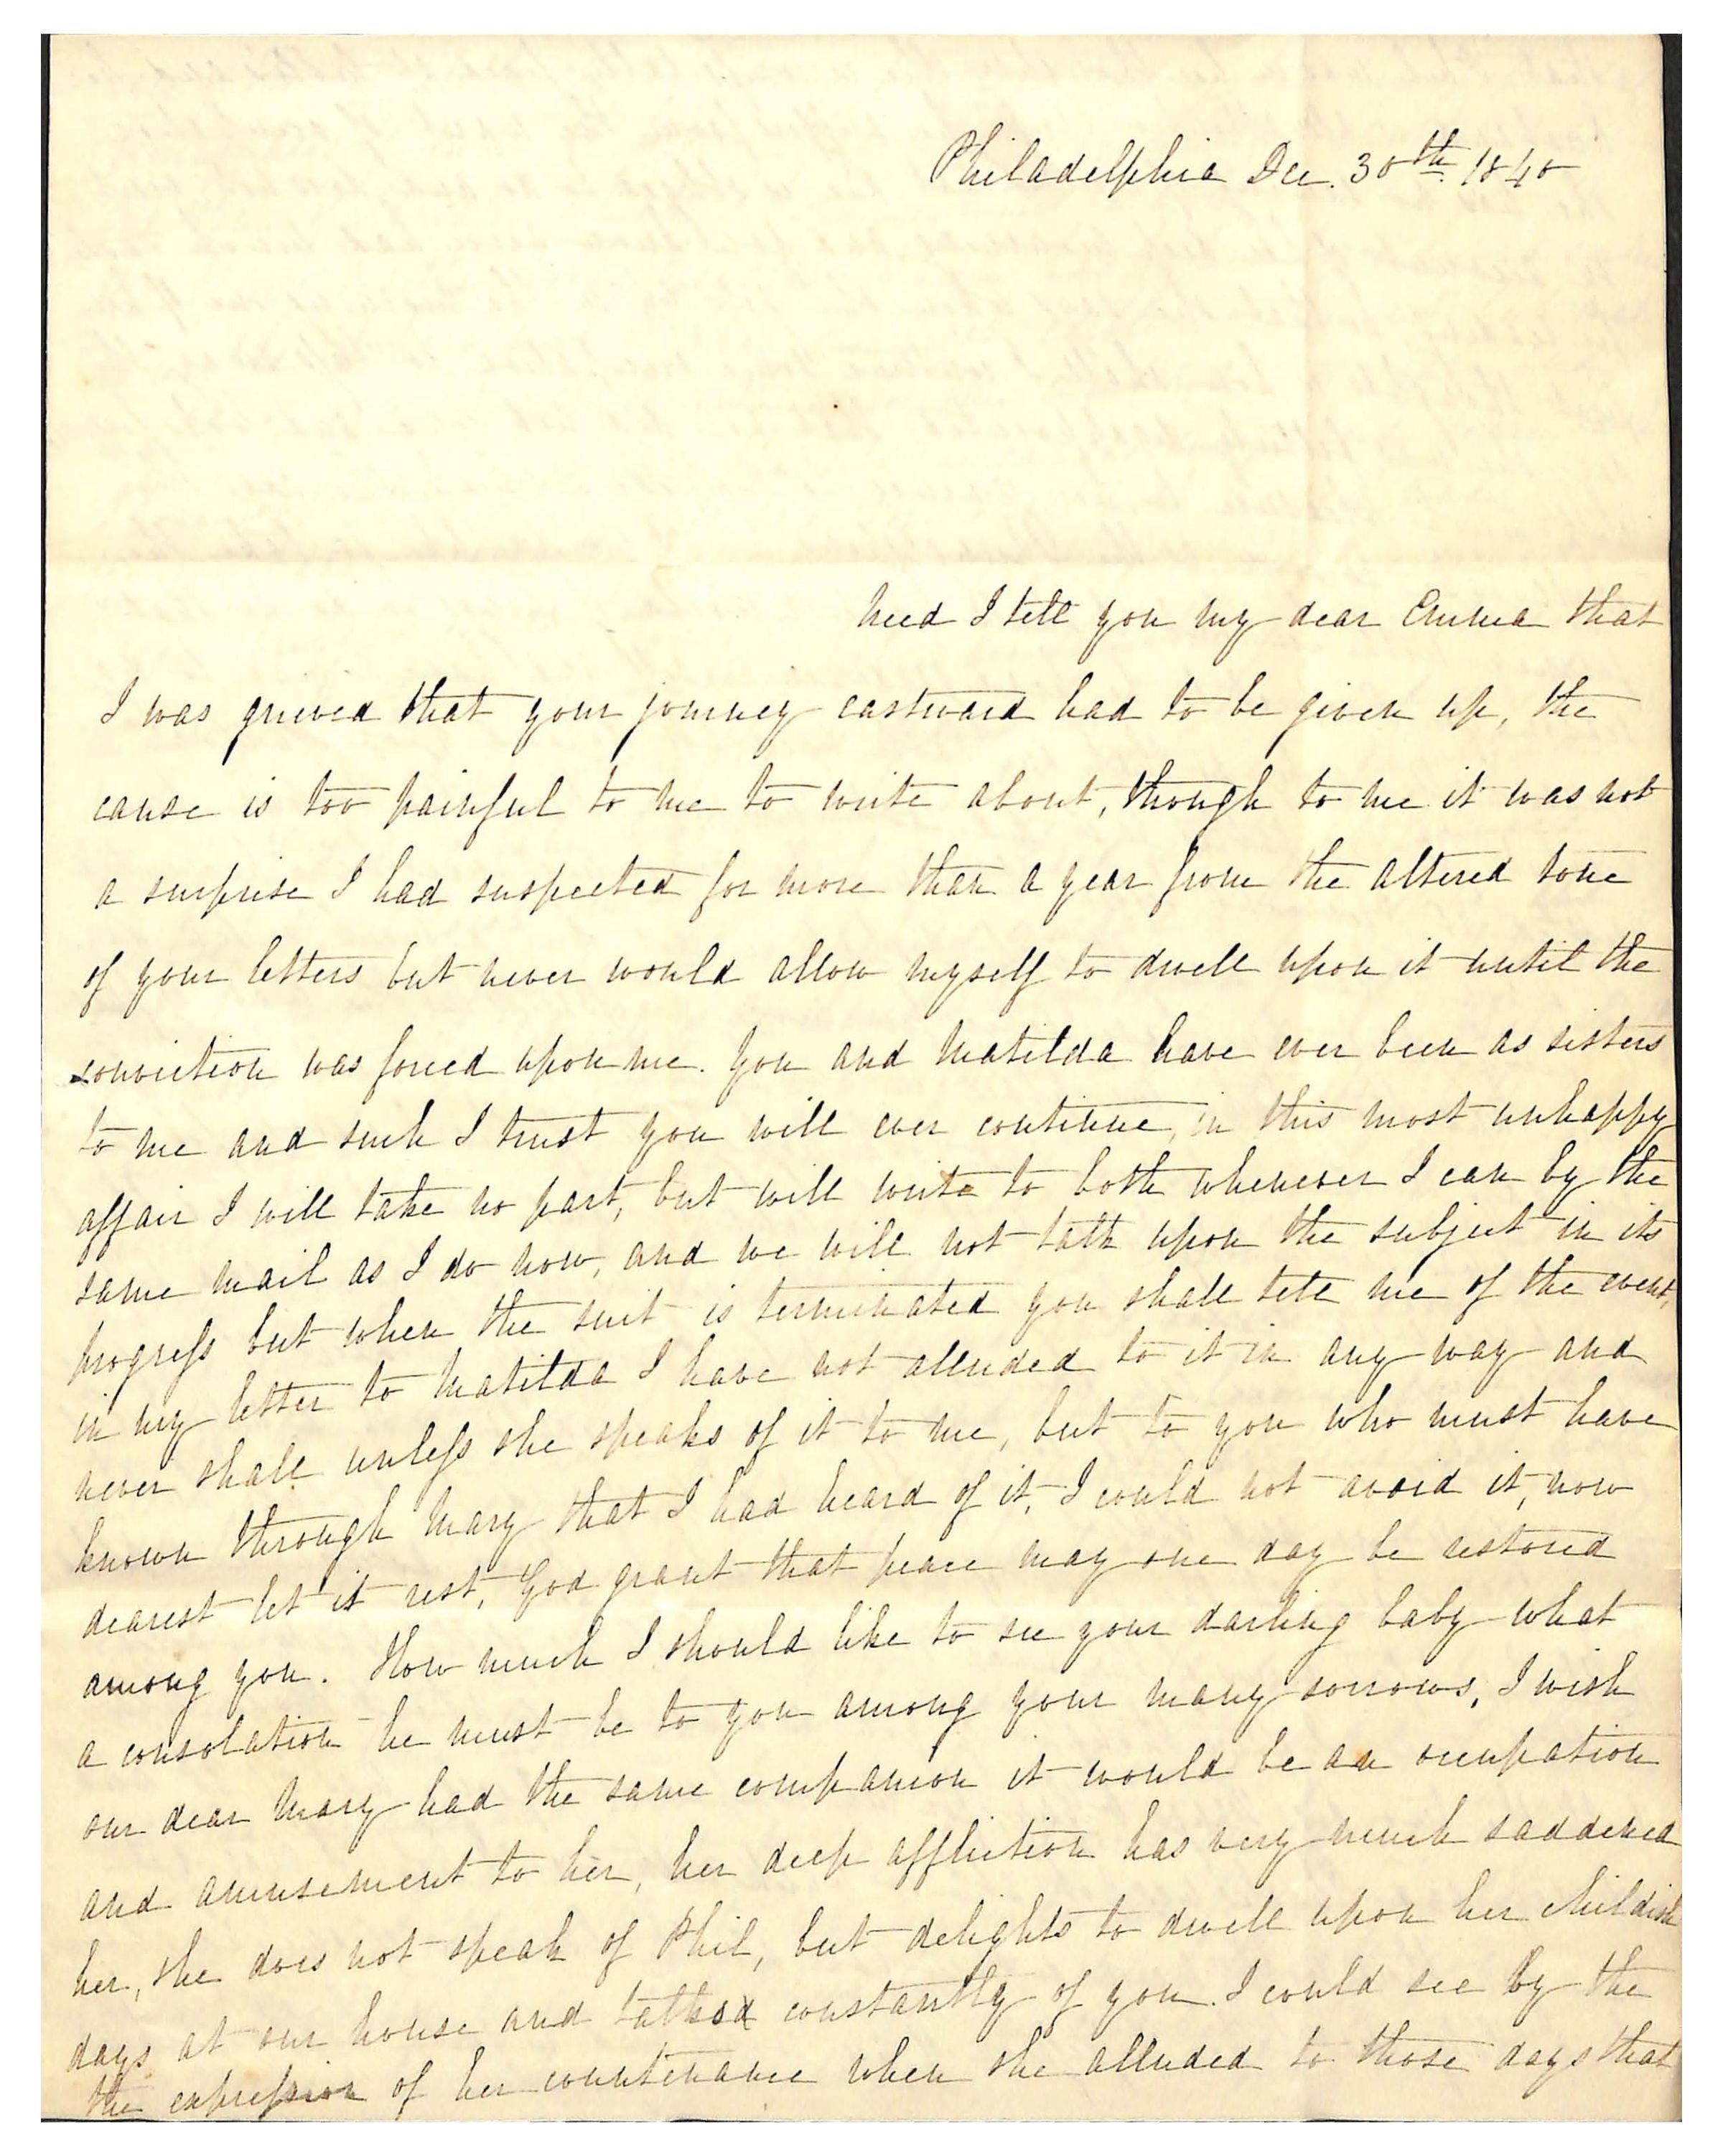 Philadelphia Dec. 30th. 1840
Need I tell you my dear Emma that
I was grieved that your journey eastward had to be given up, the
cause is too painful to me to write about, though to me it was not
a surprise I had suspected for more than a year from the altered tone
of your letters but never would allow myself to dwell upon it until the
conviction was forced upon me. You and Matilda have ever been as sisters
to me and such I trust you will ever continue, in this most unhappy
affair I will take no part, but will write to both whenever I can by the
same mail as I do now, and we will not talk upon the subject in its
progress but when the suit is terminated you shall tell me of the event,
in my letter to Matilda I have not alluded to it in any way and
never shall unless she speaks of it to me, but to you who must have
known through Mary that I had heard of it, I could not avoid it, now
dearest let it rest, God grant that peace may one day be restored
among you. How much I should like to see your darling baby what
a consolation he must be to you among your many sorrows, I wish
our dear Mary had the same companion it would be an occupation
and amusement to her, her deep affliction has very much saddened
her, she does not speak of Phil, but delights to dwell upon her childish
days at our house and talked constantly of you. I could see by the
the expression of her countenance when she alluded to those days that